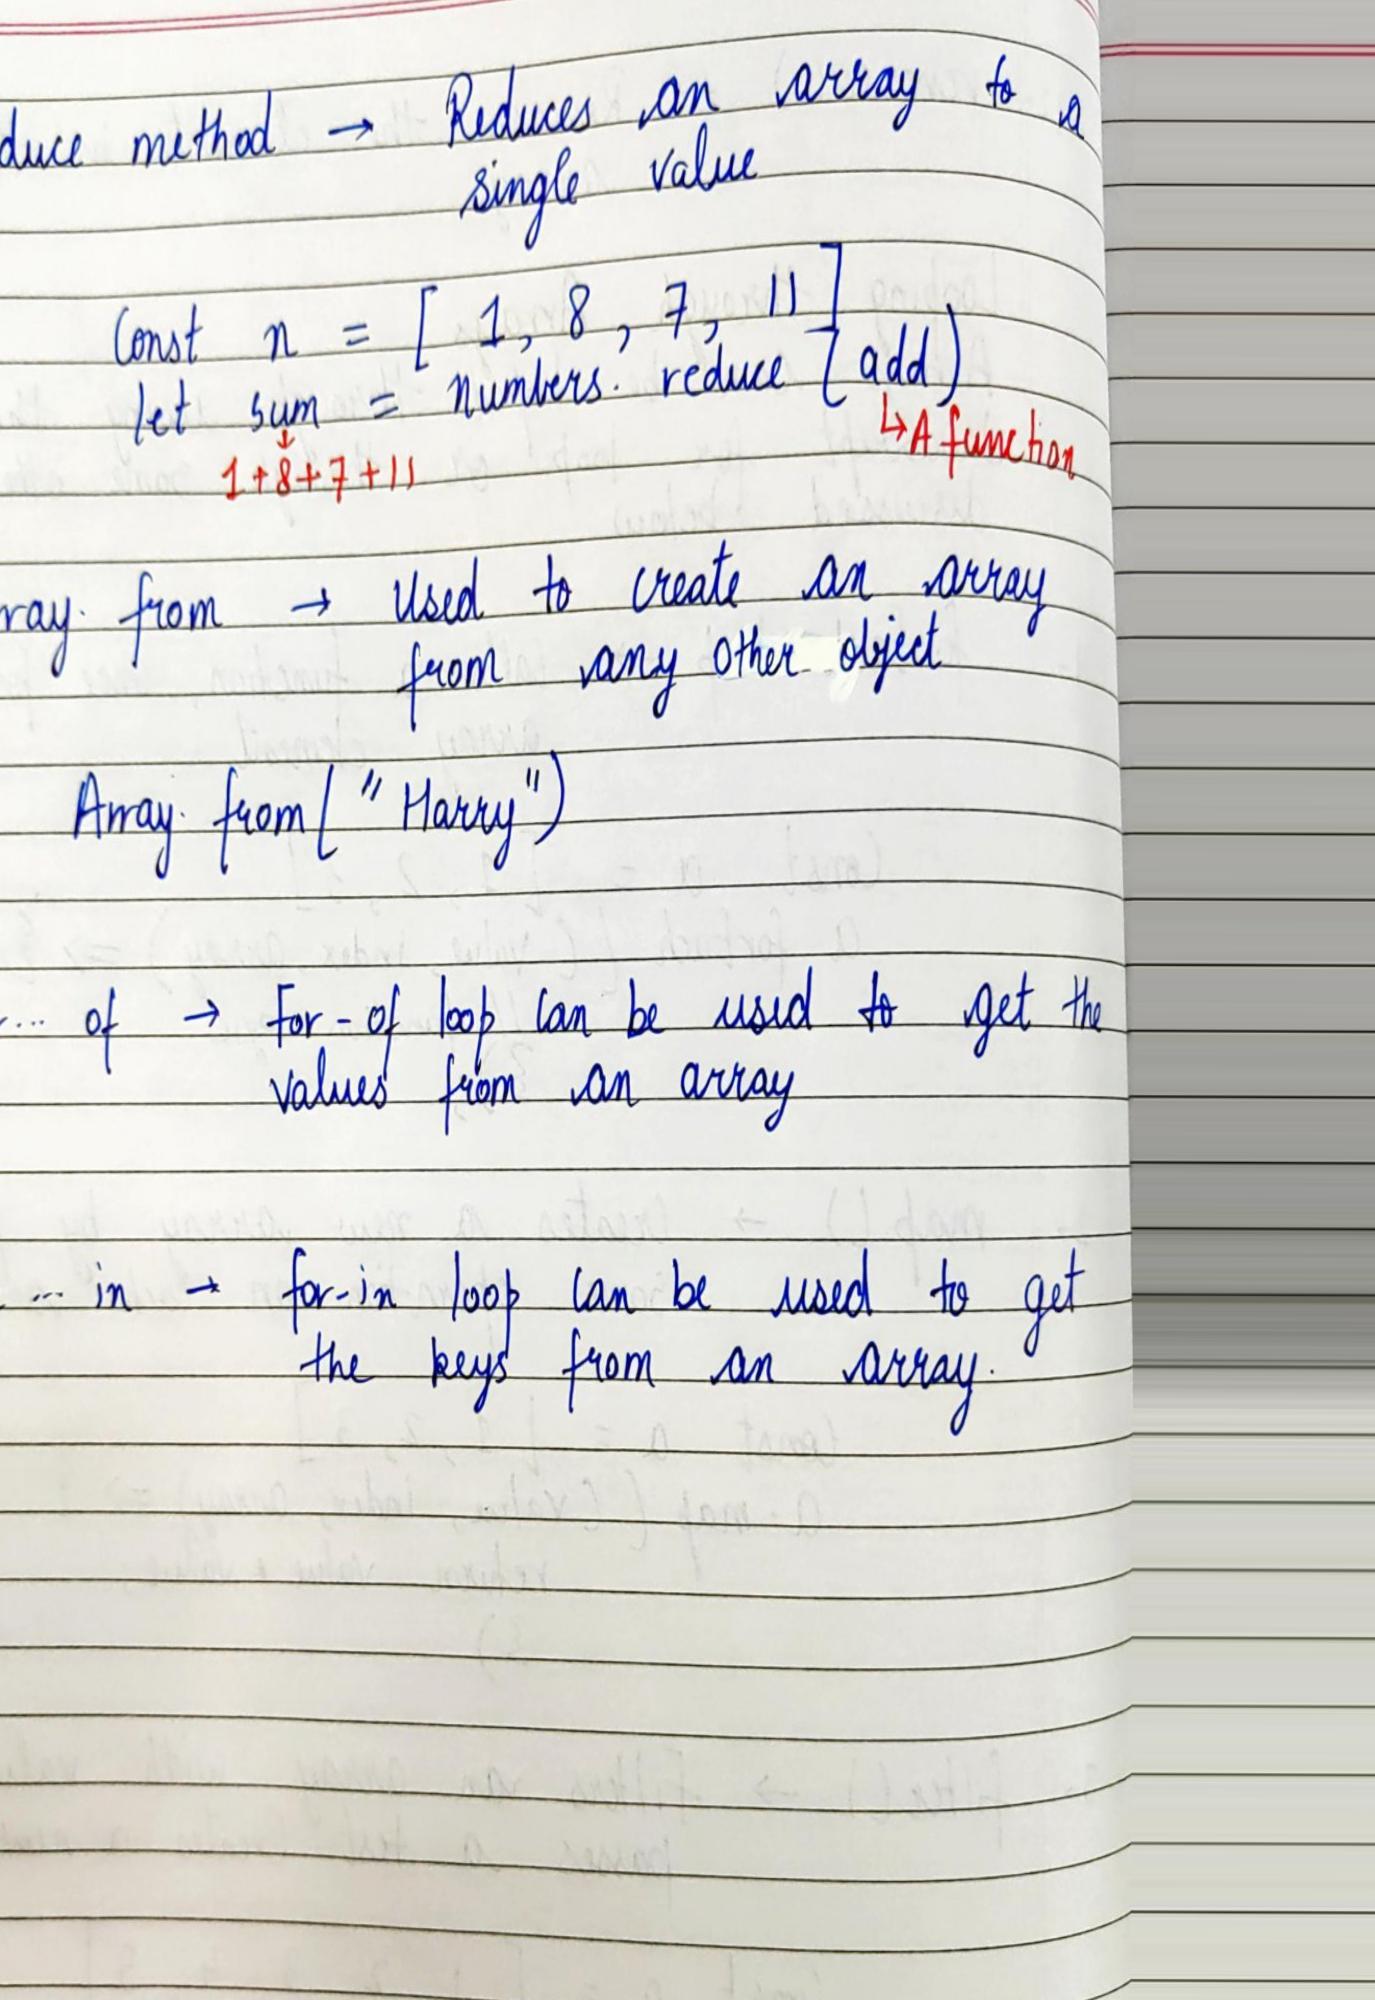 duce method → Reduces an array to a
single value
Const n = [ 1, 8, 7, 11 ]
let sum = numbers. reduce (add)
↳ A function
1+8+7+11
ray. from → Used to create an array
from any other object
Array. from ( "Harry" )
... of → For-of loop can be used to get the
values from an array
... in → for-in loop can be used to get
the keys from an array.